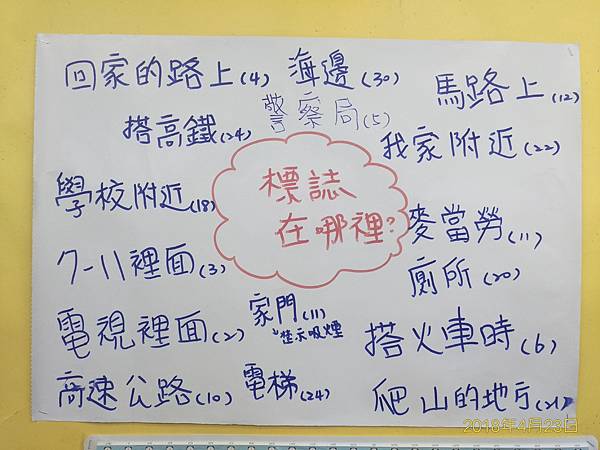 回家的路上(4)
海邊(30)
馬路上(12)
搭高鐵(24)
警察局(5)
我家附近(22)
學校附近(18)
標誌
在哪裡?
麥當勞(11)
7-11裡面(3)
廁所(20)
電視裡面(2)
家門(11)
禁示吸煙
搭火車時(6)
高速公路(10)
電梯(24)
爬山的地方(21)
2018年4月23日